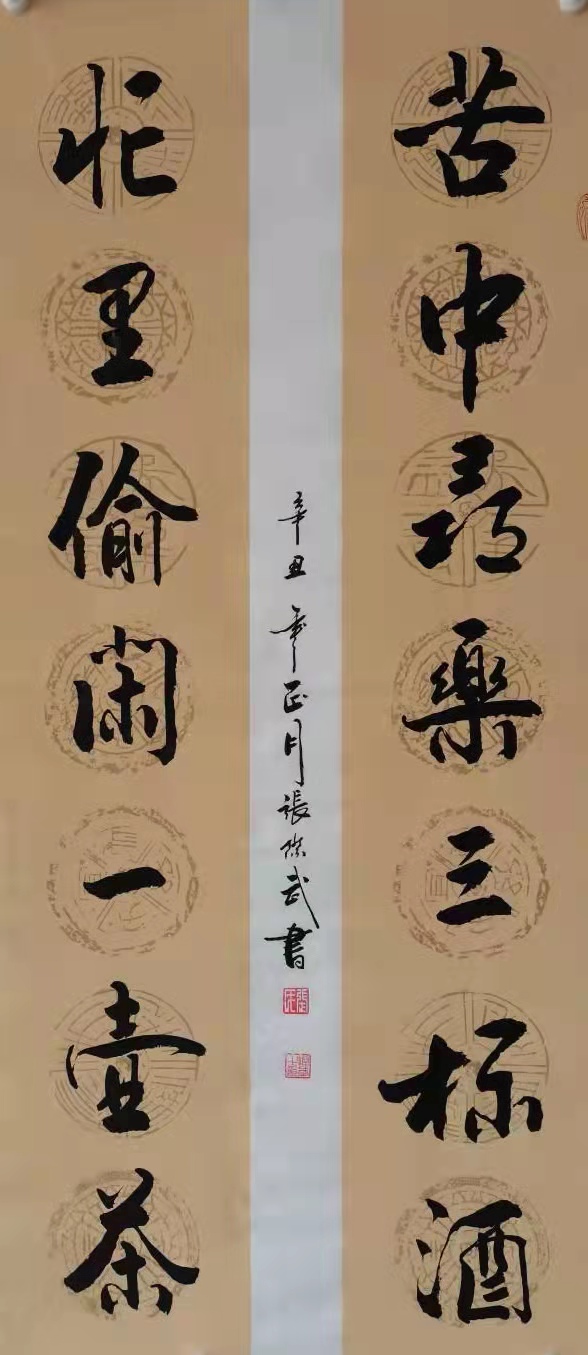 苦中尋樂三杯酒
忙里偷閑一壺茶
辛丑年正月張武書